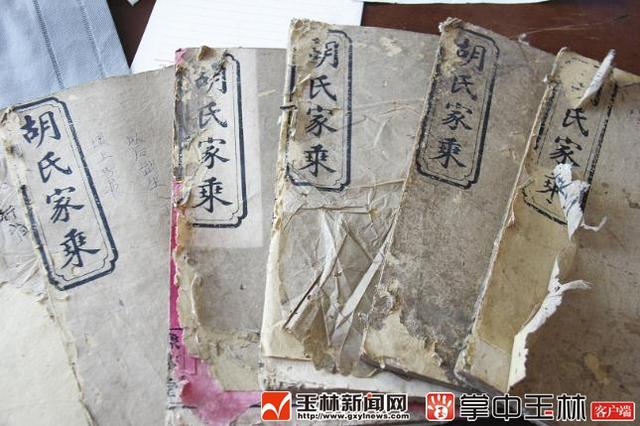 胡氏家乘
胡氏家乘
胡氏家乘
胡氏家乘
氏家乘
玉林新闻网
www.gxylnews.com
掌中玉林
客户端